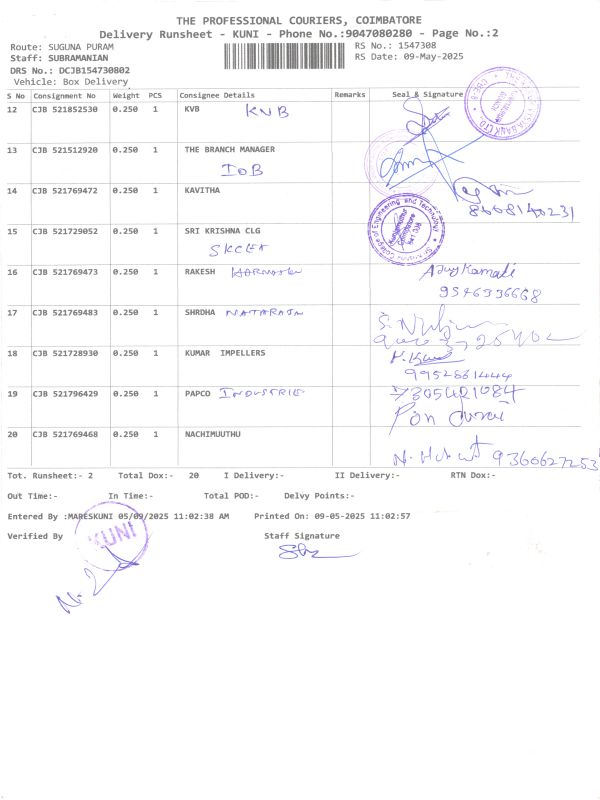 THE PROFESSIONAL COURIERS, COIMBATORE
Delivery Runsheet - KUNI - Phone No.:9047080280 - Page No.:2
Route: SUGUNA PURAM
RS No.: 1547308
Staff: SUBRAMANIAN
RS Date: 09-May-2025
DRS No.: DCJB154730802
Vehicle: Box Delivery
S No Consignment No Weight PCS Consignee Details Remarks Seal & Signature
12 CJB 521852530 0.250 1 KVB KVB
13 CJB 521512920 0.250 1 THE BRANCH MANAGER
IOB
14 CJB 521769472 0.250 1 KAVITHA
8668140231
15 CJB 521729052 0.250 1 SRI KRISHNA CLG
SKCET
16 CJB 521769473 0.250 1 RAKESH
9546336668
17 CJB 521769483 0.250 1 SHRDHA NATARAJN
18 CJB 521728930 0.250 1 KUMAR IMPELLERS
9952661444
19 CJB 521796429 0.250 1 PAPCO INDUSTRIE
7305421084
Pon durai
20 CJB 521769468 0.250 1 NACHIMUUTHU
9360627253
Tot. Runsheet:- 2 Total Dox:- 20 I Delivery:- II Delivery:- RTN Dox:-
Out Time:- In Time:- Total POD:- Delvy Points:-
Entered By :MARESKUNI 05/09/2025 11:02:38 AM Printed On: 09-05-2025 11:02:57
Verified By Staff Signature
KUNI